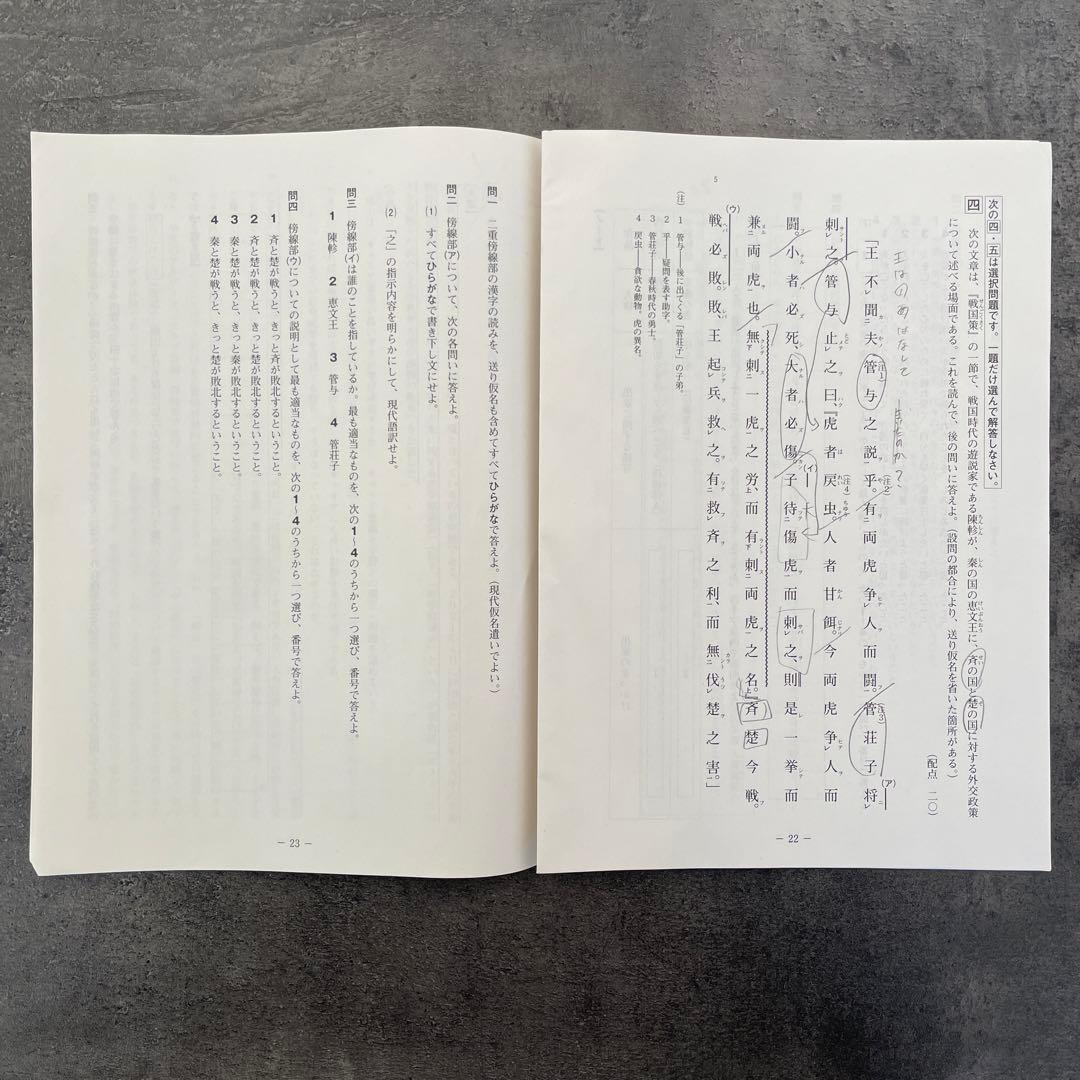 次の四・五は選択問題です。一題だけ選んで解答しなさい。
四 次の文章は、『戦国策』の一節で、戦国時代の遊説家である陳軫が、秦の国の恵文王に、斉の国と楚の国に対する外交政策
について述べる場面である。これを読んで、後の問いに答えよ。(設問の都合により、送り仮名を省いた箇所がある。)
(配点 二〇)
「王不聞夫管与之説乎。有両虎争人而闘。管荘子将
刺之。管与止之曰、『虎者戻虫。人者甘餌。今両虎争人而
闘。小者必死、大者必傷。子待傷虎而刺之、則是一挙而
兼両虎也。無刺一虎之労、而有刺両虎之名。』斉楚今戦。
戦必敗。敗王起兵救之。有救斉之利、而無伐楚之害。」
(注) 1 管与――後に出てくる「管荘子」の子弟。
2 乎――疑問を表す助字。
3 管荘子――春秋時代の勇士。
4 戻虫――貪欲な動物。虎の異名。
5
― 22 ―
問一 二重傍線部の漢字の読みを、送り仮名も含めてすべてひらがなで答えよ。(現代仮名遣いでよい。)
問二 傍線部(ア)について、次の各問いに答えよ。
(1) すべてひらがなで書き下し文にせよ。
(2) 「之」の指示内容を明らかにして、現代語訳せよ。
問三 傍線部(イ)は誰のことを指しているか。最も適当なものを、次の1〜4のうちから一つ選び、番号で答えよ。
1 陳軫 2 恵文王 3 管与 4 管荘子
問四 傍線部(ウ)についての説明として最も適当なものを、次の1〜4のうちから一つ選び、番号で答えよ。
1 斉と楚が戦うと、きっと斉が敗北するということ。
2 斉と楚が戦うと、きっと楚が敗北するということ。
3 秦と楚が戦うと、きっと秦が敗北するということ。
4 秦と楚が戦うと、きっと楚が敗北するということ。
― 23 ―